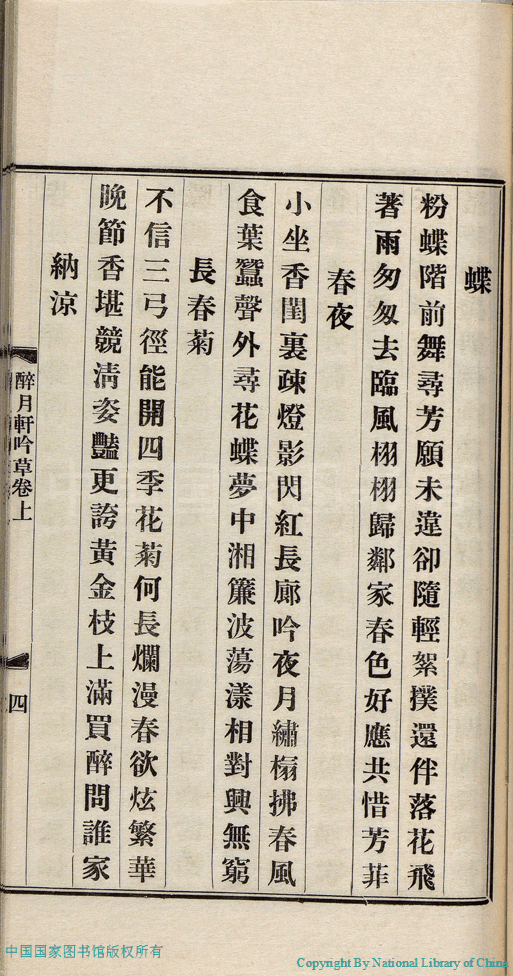 蝶
粉蝶階前舞尋芳願未違卻隨輕絮撲還伴落花飛
著雨匆匆去臨風栩栩歸鄰家春色好應共惜芳菲
春夜
小坐香閨裏疎燈影閃紅長廊吟夜月繡榻拂春風
食葉蠶聲外尋花蝶夢中湘簾波蕩漾相對興無窮
長春菊
不信三弓徑能開四季花菊何長爛漫春欲炫繁華
晚節香堪競淸姿豔更誇黃金枝上滿買醉問誰家
納涼
醉月軒吟草卷上
四
中国国家图书馆版权所有
Copyright By National Library of China